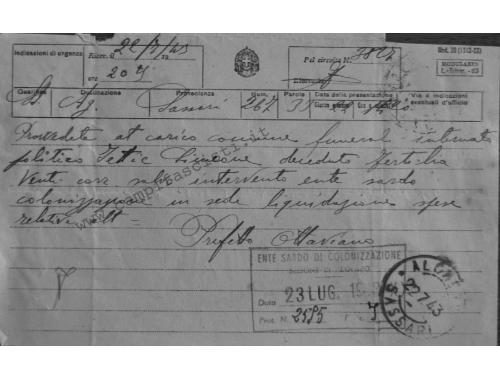 Indicazioni di urgenza
Ricev. il 22/7/43
ore 20
Pel circuito N. 3827
Mod. 30 (1942-XX)
MODULARIO
Qualifica Destinazione Provenienza Num. Parole Data della presentazione Via e indicazioni eventuali d'ufficio
Ag. Sassari 267 33 22
Provvedete at carico comune funerali internato
politico Tetic Simeone deceduto Fertilia
Venti ore salvo intervento ente sardo
colonizzazione in sede liquidazione spese
relative alt =
Prefetto Ottaviano
www.campifascisti.it
ENTE SARDO DI COLONIZZAZIONE
Data 23 LUG. 19
Prot. N. 2585
22.7.43
SASSARI